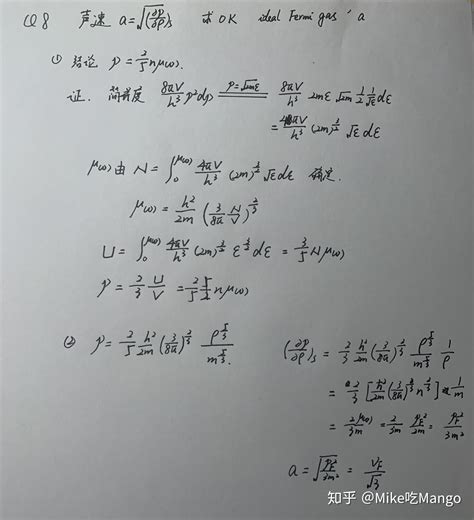 Q8 声速 a=√(∂P/∂ρ)_S 求 0K ideal Fermi gas's a
① 结论 P=2/5 nμ(0).
证. 简并度 8πV/h³ p²dp =(p=√2mε) 8πV/h³ 2mε √2m 1/2 1/√ε dε
=4πV/h³ (2m)^{3/2} √ε dε
μ(0)由 N=∫₀^{μ(0)} 4πV/h³ (2m)^{3/2} √ε dε 确定.
μ(0)=h²/2m (3/8π N/V)^{2/3}
U=∫₀^{μ(0)} 4πV/h³ (2m)^{3/2} ε^{3/2} dε = 3/5 Nμ(0)
P=2/3 U/V = 2/5 nμ(0)
② P=2/5 h²/2m (3/8π)^{2/3} ρ^{5/3}/m^{5/3}.
(∂P/∂ρ)_S = 2/3 h²/2m (3/8π)^{2/3} ρ^{5/3}/m^{5/3} 1/ρ
= 2/3 [h²/2m (3/8π)^{2/3} n^{2/3}] 1/m
= 2μ(0)/3m = 2/3m P_F²/2m = P_F²/3m²
a=√(P_F²/3m²) = V_F/√3
知乎 @Mike吃Mango